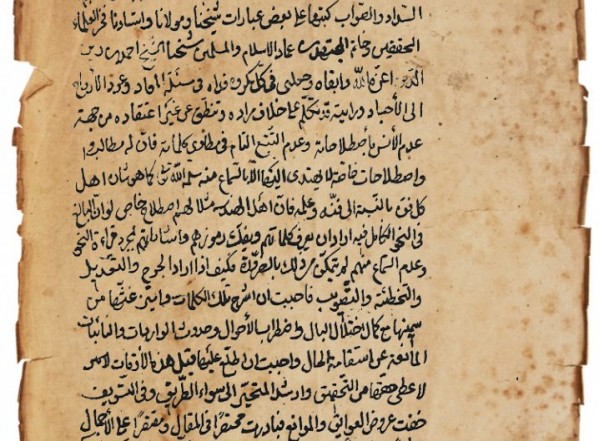 السداد والصواب كتبتها على بعض عبارات شيخنا ومولانا واستادنا فخر العلماء
المحققين وخاتمة المجتهدين عماد الاسلام والمسلمين شيخنا الشيخ احمد بن زين
الدين اعزه الله وابقاه وجعلني في كل مكروه فداه في مسئلة المعاد وعود الأرواح
الى الأجساد ورايته قد تكلم على خلاف مراده وتنطق عن غير اعتقاده من جهة
عدم الأنس باصطلاحاته وعدم التتبع التام في مطاوي كلماته فان له مطالبا
واصطلاحات خاصة لا يهتدى اليها الا بالسماع منه سلمه الله كما هو شان اهل
كل فن بالنسبة الى فنه وعلمه فان اهل الهند مثلا لهم اصطلاح خاص لو ان البالغ
في النحو الكامل فيه اراد ان يعرف كلماتهم ويفك رموزهم واستاراتهم بمجرد قراءة النحو
وعدم السماع منهم لم يتمكن من ذلك بالضرورة فكيف اذا اراد الجرح والتعديل
والتخطئة والتصويب فاحببت ان اشرح تلك الكلمات وابين غثها من
سمينها مع كمال اختلال البال واضطراب الأحوال وحدوث الواردات والنائبات
المانعة عن استقامة الحال واحببت ان اطلع عليها قبل هذا الأوقات
لاعطي حقها من التحقيق وارشد المتحير الى سواء الطريق وفي التسويف
خفت عروض العوايق والموانع فبادرت مختصرا في المقال ومقتصرا على الأجمال